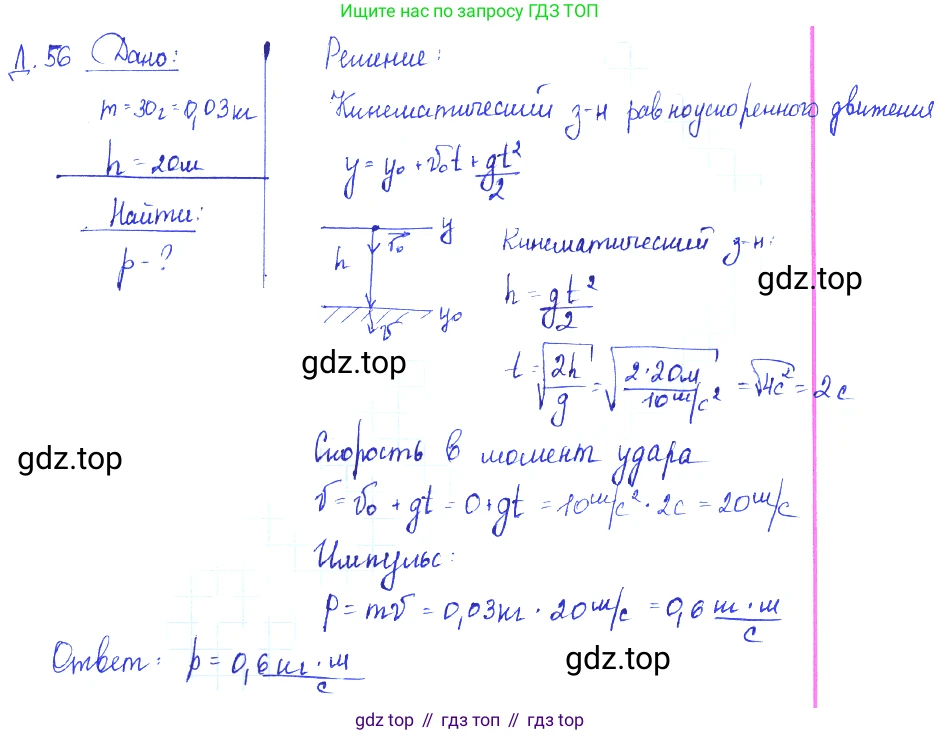 Ищите нас по запросу ГДЗ ТОП
Д. 56 Дано:
m = 30г = 0,03 кг
h = 20м
Найти:
p - ?
Решение:
Кинематический з-н равноускоренного движения
y = y₀ + v₀t + gt²/2
y
v₀
h
y₀
v
Кинематический з-н:
h = gt²/2
gdz.top
t = √(2h/g) = √(2·20м/10м/с²) = √4с² = 2с
gdz.top
gdz.top
Скорость в момент удара
v = v₀ + gt = 0 + gt = 10м/с² · 2с = 20м/с
Импульс:
p = mv = 0,03кг · 20м/с = 0,6 кг·м/с
gdz.top
Ответ: p = 0,6 кг·м/с
gdz top // гдз топ // gdz top